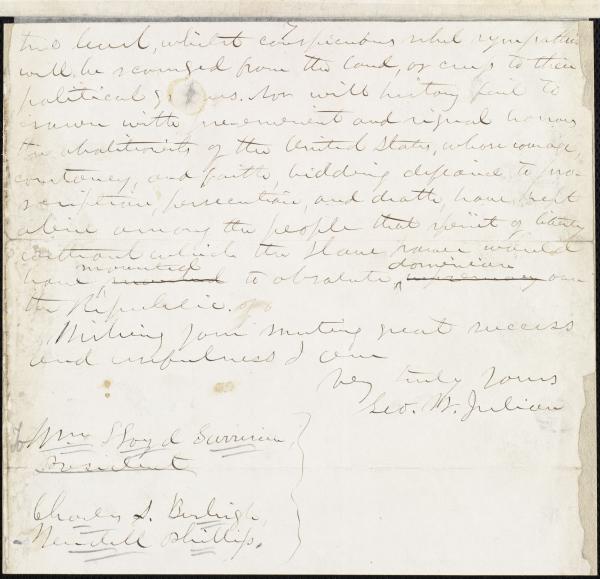 true level, whilst conspicuous rebel sympathies
will be scourged from the land, or creep to their
political graves. Nor will history fail to
crown with reverement and signal honors
the abolitionists of the United States, whose courage,
constancy, and faith, bidding defiance to pro-
scription, persecution, and death, have kept
alive among the people that spirit of liberty
without which the Slave power would
have mounted to absolute dominion over
the Republic.
Wishing your meeting great success
and usefulness I am
Very truly yours
Geo. W. Julian
To Wm Lloyd Garrison,
President
Charles S. Burleigh,
Wendell Phillips.